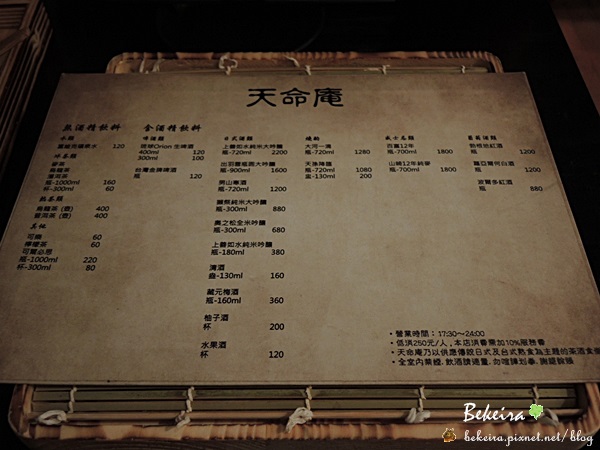 天命庵
無酒精飲料
水類
120
冰茶類
麥茶
烏龍茶
普洱茶
瓶-1000ml 160
杯-300ml 60
熱茶類
烏龍茶 (壺) 400
普洱茶 (壺) 400
其他
可樂 60
檸檬茶 60
可爾必思
瓶-1000ml 220
杯-300ml 80
含酒精飲料
啤酒類
琉球Orion 生啤酒
400ml 120
300ml 100
台灣金牌啤酒
瓶 120
日式酒類
上善如水純米大吟釀
瓶-720ml 2200
瓶-900ml 1600
男山寒酒
瓶-720ml 1200
獺祭純米大吟釀
瓶-300ml 880
奥之松全米吟釀
瓶-300ml 680
上善如水純米吟釀
瓶-180ml 380
清酒
壺-130ml 160
藏元梅酒
瓶-160ml 360
柚子酒
杯 200
水果酒
杯 120
燒酎
大河一滴
瓶-720ml 1280
天孫降臨
瓶-720ml 1080
壺-130ml 200
威士忌類
百富12年
瓶-700ml 1800
山崎12年純麥
瓶-700ml 1800
葡萄酒類
勃根地紅酒
瓶 880
隴亞爾河白酒
瓶 880
波爾多紅酒
瓶 880
• 營業時間：17:30～24:00
• 低消250元/人，本店消費需加10%服務費
• 天命庵乃以供應傳統日式及台式熟食為主題的茶酒食
• 全室內禁煙. 飲酒請適量. 勿喧譁划拳. 謝謝
Bekeira
bekeira.pixnet.net/blog